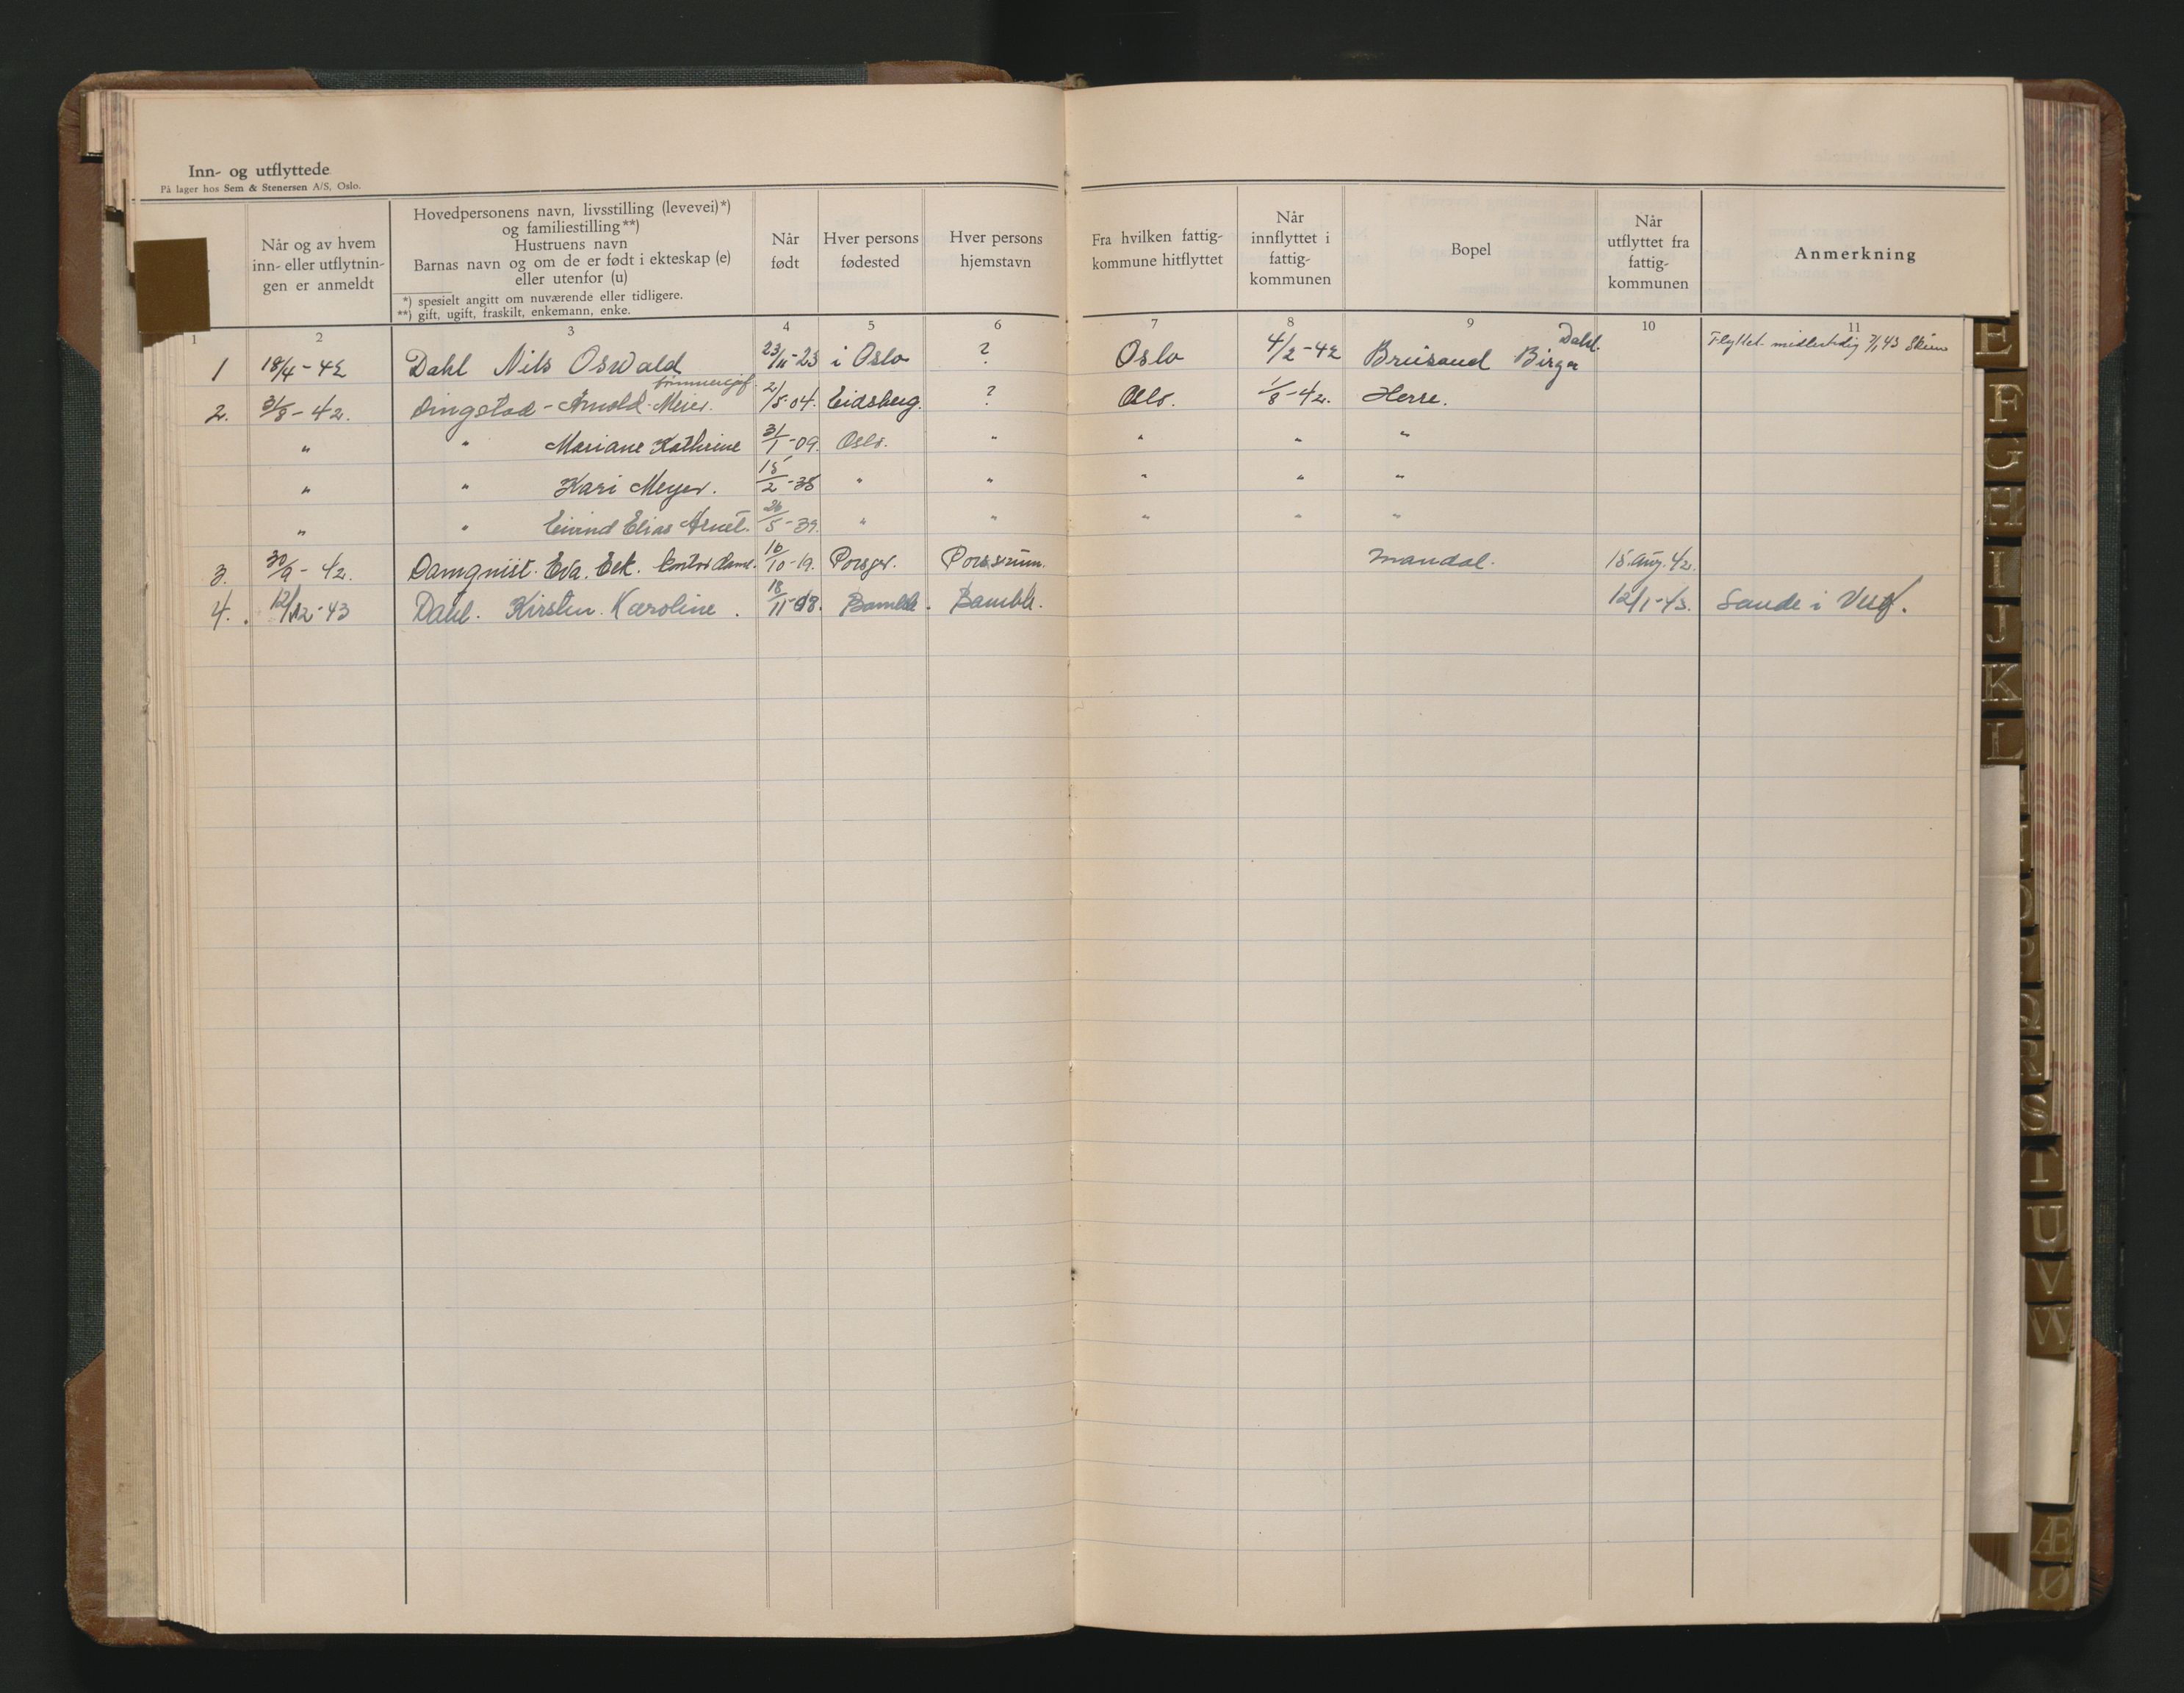 Inn- og utflyttede
På lager hos Sem & Stenersen A/S, Oslo.
Når og av hvem
inn- eller utflytnin-
gen er anmeldt
Hovedpersonens navn, livsstilling (levevei)*)
og familiestilling**)
Hustruens navn
Barnas navn og om de er født i ekteskap (e)
eller utenfor (u)
*) spesielt angitt om nuværende eller tidligere.
**) gift, ugift, fraskilt, enkemann, enke.
Når
født
Hver persons
fødested
Hver persons
hjemstavn
Fra hvilken fattig-
kommune hitflyttet
Når
innflyttet i
fattig-
kommunen
Bopel
Når
utflyttet fra
fattig-
kommunen
Anmerkning
1 2 3 4 5 6 7 8 9 10 11
1 18/4-42 Dahl Nils Oswald 23/11-23 i Oslo ? Oslo 4/2-42 Breisand Birger Dahl. Flyttet midlertidig 7/1 43 Skien
2. 31/8-42. Dingstad-Arnold-Meier. 2/5-04. Eidsberg. ? Oslo. 1/8-42. Herre.
" " Mariane Kathrine 31/1-09. Oslo. " " " "
" " Kari Meyer. 15/2-38 " " " " "
" " Eivind Elias 26/5-39. " " " " "
3. 30/9-42. Damqvist. Eva. Eek. Kontordame. 16/10-19. Porsgr. Porsgrunn. Mandal. 15. aug. 42.
4. 12/12-43 Dahl. Kirsten. Karoline. 18/11-18. Bamble. Bamble. 12/1-43. Sande i Vestf.
E
F
G
H
I
J
K
L
Q
R
S
T
U
V
W
Æ
Ø